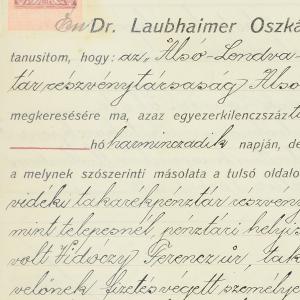 Én Dr. Laubhaimer Oszká
tanusítom, hogy: az "Alsó-Lendva-
tár részvénytársaság Alsó
megkeresésére ma, azaz egyezerkilenczszázt
hó harminczadik napján, de
a melynek szószerinti másolata a tulsó oldalo
vidéki takarékpénztár részvény
mint telepesnél, pénztári helyis
volt Vidóczy Ferencz úr, tak
velőnek fizetés végett személye